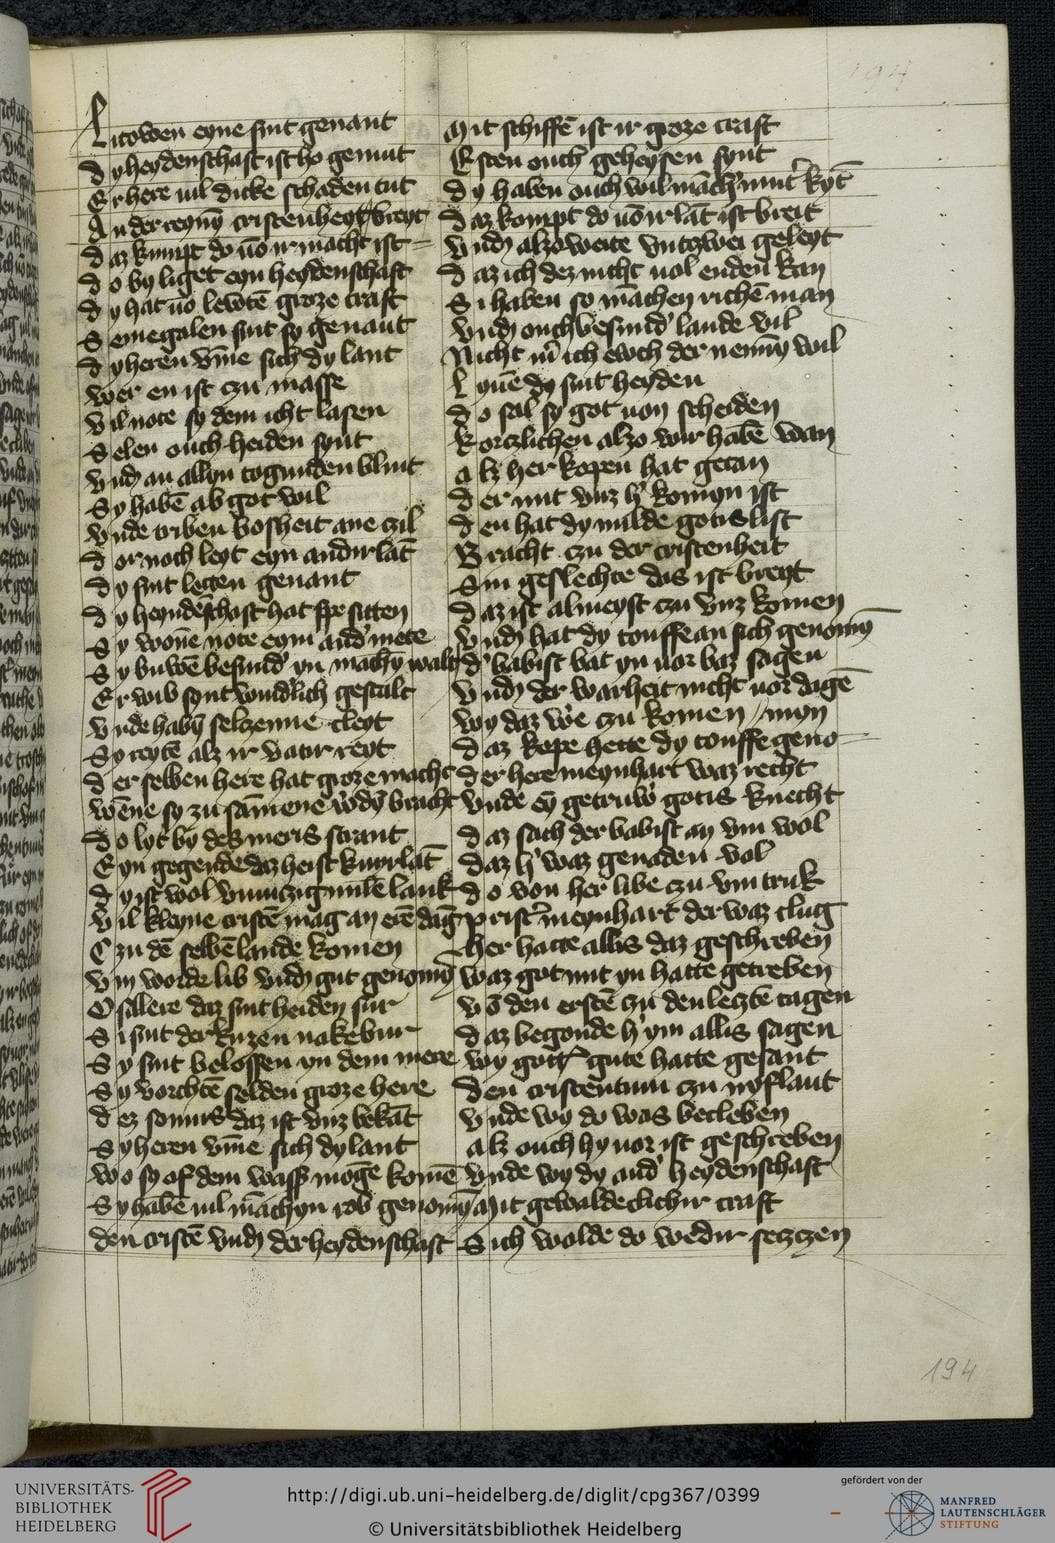 194
Litowen eyne sint genant
dy heydenschaft ist ho gemut
Er here uil dicke schaden tut
An der reynē cristenheyt breyt
daz kumpt do uō ir macht ist
do by liget eyn heydenschaft
dy hat uō lewtē groze craft
Semegalen sint sy genant
dy heren vm̄e sich dy lant
wer en ist czu masse
vil note sy dem icht lasen
Selen ouch heiden synt
vnd an allyn togunden blint
Sy habē abgot wil
vnde triben bosheit ane czil
dor noch leyt eyn andir lāt
dy sint letten genant
dy heydēschaft hat spe sitten
Sy wonē note eym and' mete
Sy buwē besund' yn machȳ walt
Er wib synt wund'lich gestalt
vnde habȳ selzenne cleyt
Sy reytē alz ir vatir reyt
der selben here hat groze macht
wēne sy zu samene w'dȳ bracht
do lyt by des meris strant
Eyn gegende daz heist kuwrlāt
dy ist wol vumczig mile lank
vil kleyne cristē mag an erē dāg
Czu dē selbē lande komen
vm worde lib vnd gut genomȳ
Osillere daz sint heiden sur
Si sint der kuren nakebur
Sy sint beslossen yn dem mere
Sy vorchtē selden groze here
dez somirs daz ist vnz bekāt
Sy heren vm̄e sich dy lant
wo sy of dem wass' moge komē
Sy habē uil māchyn rob genomȳ
den cristē vnd der heydenschaft
Mit schiffē ist ir groze craft
Esten ouch geheysen synt
dy haben ouch wil māch' mut' kȳt
daz kompt do uō ir lāt ist breit
vnd alzo weite vntczwei geleyt
daz ich dez nicht uol enden kan
Si haben so māchen richē man
vnd ouch besund' lande vil
Nicht m' ich ewch der nenny wil
Lyuē dy sint heyden
do sal sy got uon scheiden
kortzlichen alzo wir habē wan
alz her kopen hat getan
der mit vnz h' komyn ist
den hat dy milde gotis list
Bracht czu der cristenheit
Sin geslechte das ist breyt
daz ist almeyst czu vnz komen
vnd hat dy touffe an sich genomȳ
d' babist bat yn uor baz sagen
vnd der warheit nicht uor dagē
wy daz w'e czu komen myn
daz kope hette dy touffe geno
der here meynhart waz recht
vnde eȳ getruw' gotis knecht
daz sach der babist an vm wol
daz h' waz genaden vol
do von her libe czu vm truk
prist' meynhart der waz clug
her hatte allis daz geschreben
waz got mit yn hatte getreben
vō den erstē czu den letztē tagen
daz begonde h' ym allis sagen
wy gotis gute hatte gesant
den cristentum czu nyflant
vnde wy do was becleben
alz ouch hy uor ist geschreben
vnde wy dy and' heydenschaft
Mit gewaldeclichir craft
Sich wolde do wedir seczczen
194
UNIVERSITÄTS-
BIBLIOTHEK
HEIDELBERG
http://digi.ub.uni-heidelberg.de/diglit/cpg367/0399
© Universitätsbibliothek Heidelberg
gefördert von der
MANFRED
LAUTENSCHLÄGER
STIFTUNG